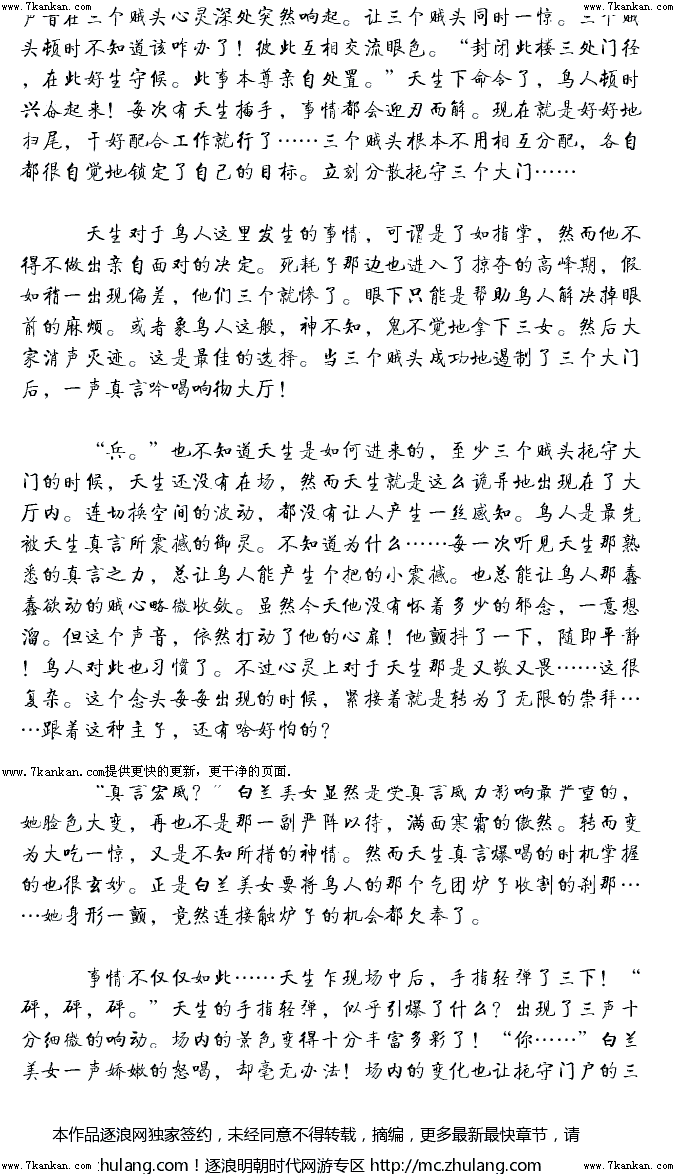 www.7kankan.com www.7kankan.com www.7kankan.com
声音在三个贼头心灵深处突然响起。让三个贼头同时一惊。三个贼
头顿时不知道该咋办了！彼此互相交流眼色。“封闭此楼三处门径
，在此好生守候。此事本尊亲自处置。”天生下命令了，鸟人顿时
兴奋起来！每次有天生插手，事情都会迎刃而解。现在就是好好地
扫尾，干好配合工作就行了……三个贼头根本不用相互分配，各自
都很自觉地锁定了自己的目标。立刻分散扼守三个大门……
天生对于鸟人这里发生的事情，可谓是了如指掌，然而他不
得不做出亲自面对的决定。死耗子那边也进入了掠夺的高峰期，假
如稍一出现偏差，他们三个就惨了。眼下只能是帮助鸟人解决掉眼
前的麻烦。或者象鸟人这般，神不知，鬼不觉地拿下三女。然后大
家消声灭迹。这是最佳的选择。当三个贼头成功地遏制了三个大门
后，一声真言吟唱响彻大厅！
“兵。”也不知道天生是如何进来的，至少三个贼头扼守大
门的时候，天生还没有在场，然而天生就是这么诡异地出现在了大
厅内。连切换空间的波动，都没有让人产生一丝感知。鸟人是最先
被天生真言所震撼的御灵。不知道为什么……每一次听见天生那熟
悉的真言之力，总让鸟人能产生个把的小震撼。也总能让鸟人那蠢
蠢欲动的贼心略微收敛。虽然今天他没有怀着多少的邪念，一意想
溜。但这个声音，依然打动了他的心扉！他颤抖了一下，随即平静
！鸟人对此也习惯了。不过心灵上对于天生那是又敬又畏……这很
复杂。这个念头每每出现的时候，紧接着就是转为了无限的崇拜…
…跟着这种主子，还有啥好怕的？
www.7kankan.com提供更快的更新，更干净的页面.
“真言宏威？”白兰美女显然是受真言威力影响最严重的，
她脸色大变，再也不是那一副严阵以待，满面寒霜的傲然。转而变
为大吃一惊，又是不知所措的神情。然而天生真言爆喝的时机掌握
的也很玄妙。正是白兰美女要将鸟人的那个气团炉子收割的刹那…
…她身形一颤，竟然连接触炉子的机会都欠奉了。
事情不仅仅如此……天生乍现场中后，手指轻弹了三下！“
砰，砰，砰。”天生的手指轻弹，似乎引爆了什么？出现了三声十
分细微的响动。场内的景色变得十分丰富多彩了！“你……”白兰
美女一声娇嫩的怒喝，却毫无办法！场内的变化也让扼守门户的三
本作品逐浪网独家签约，未经同意不得转载，摘编，更多最新最快章节，请
www.7kankan.com zhulang.com！逐浪明朝时代网游专区 http://mc.zhulang.com www.7kankan.com